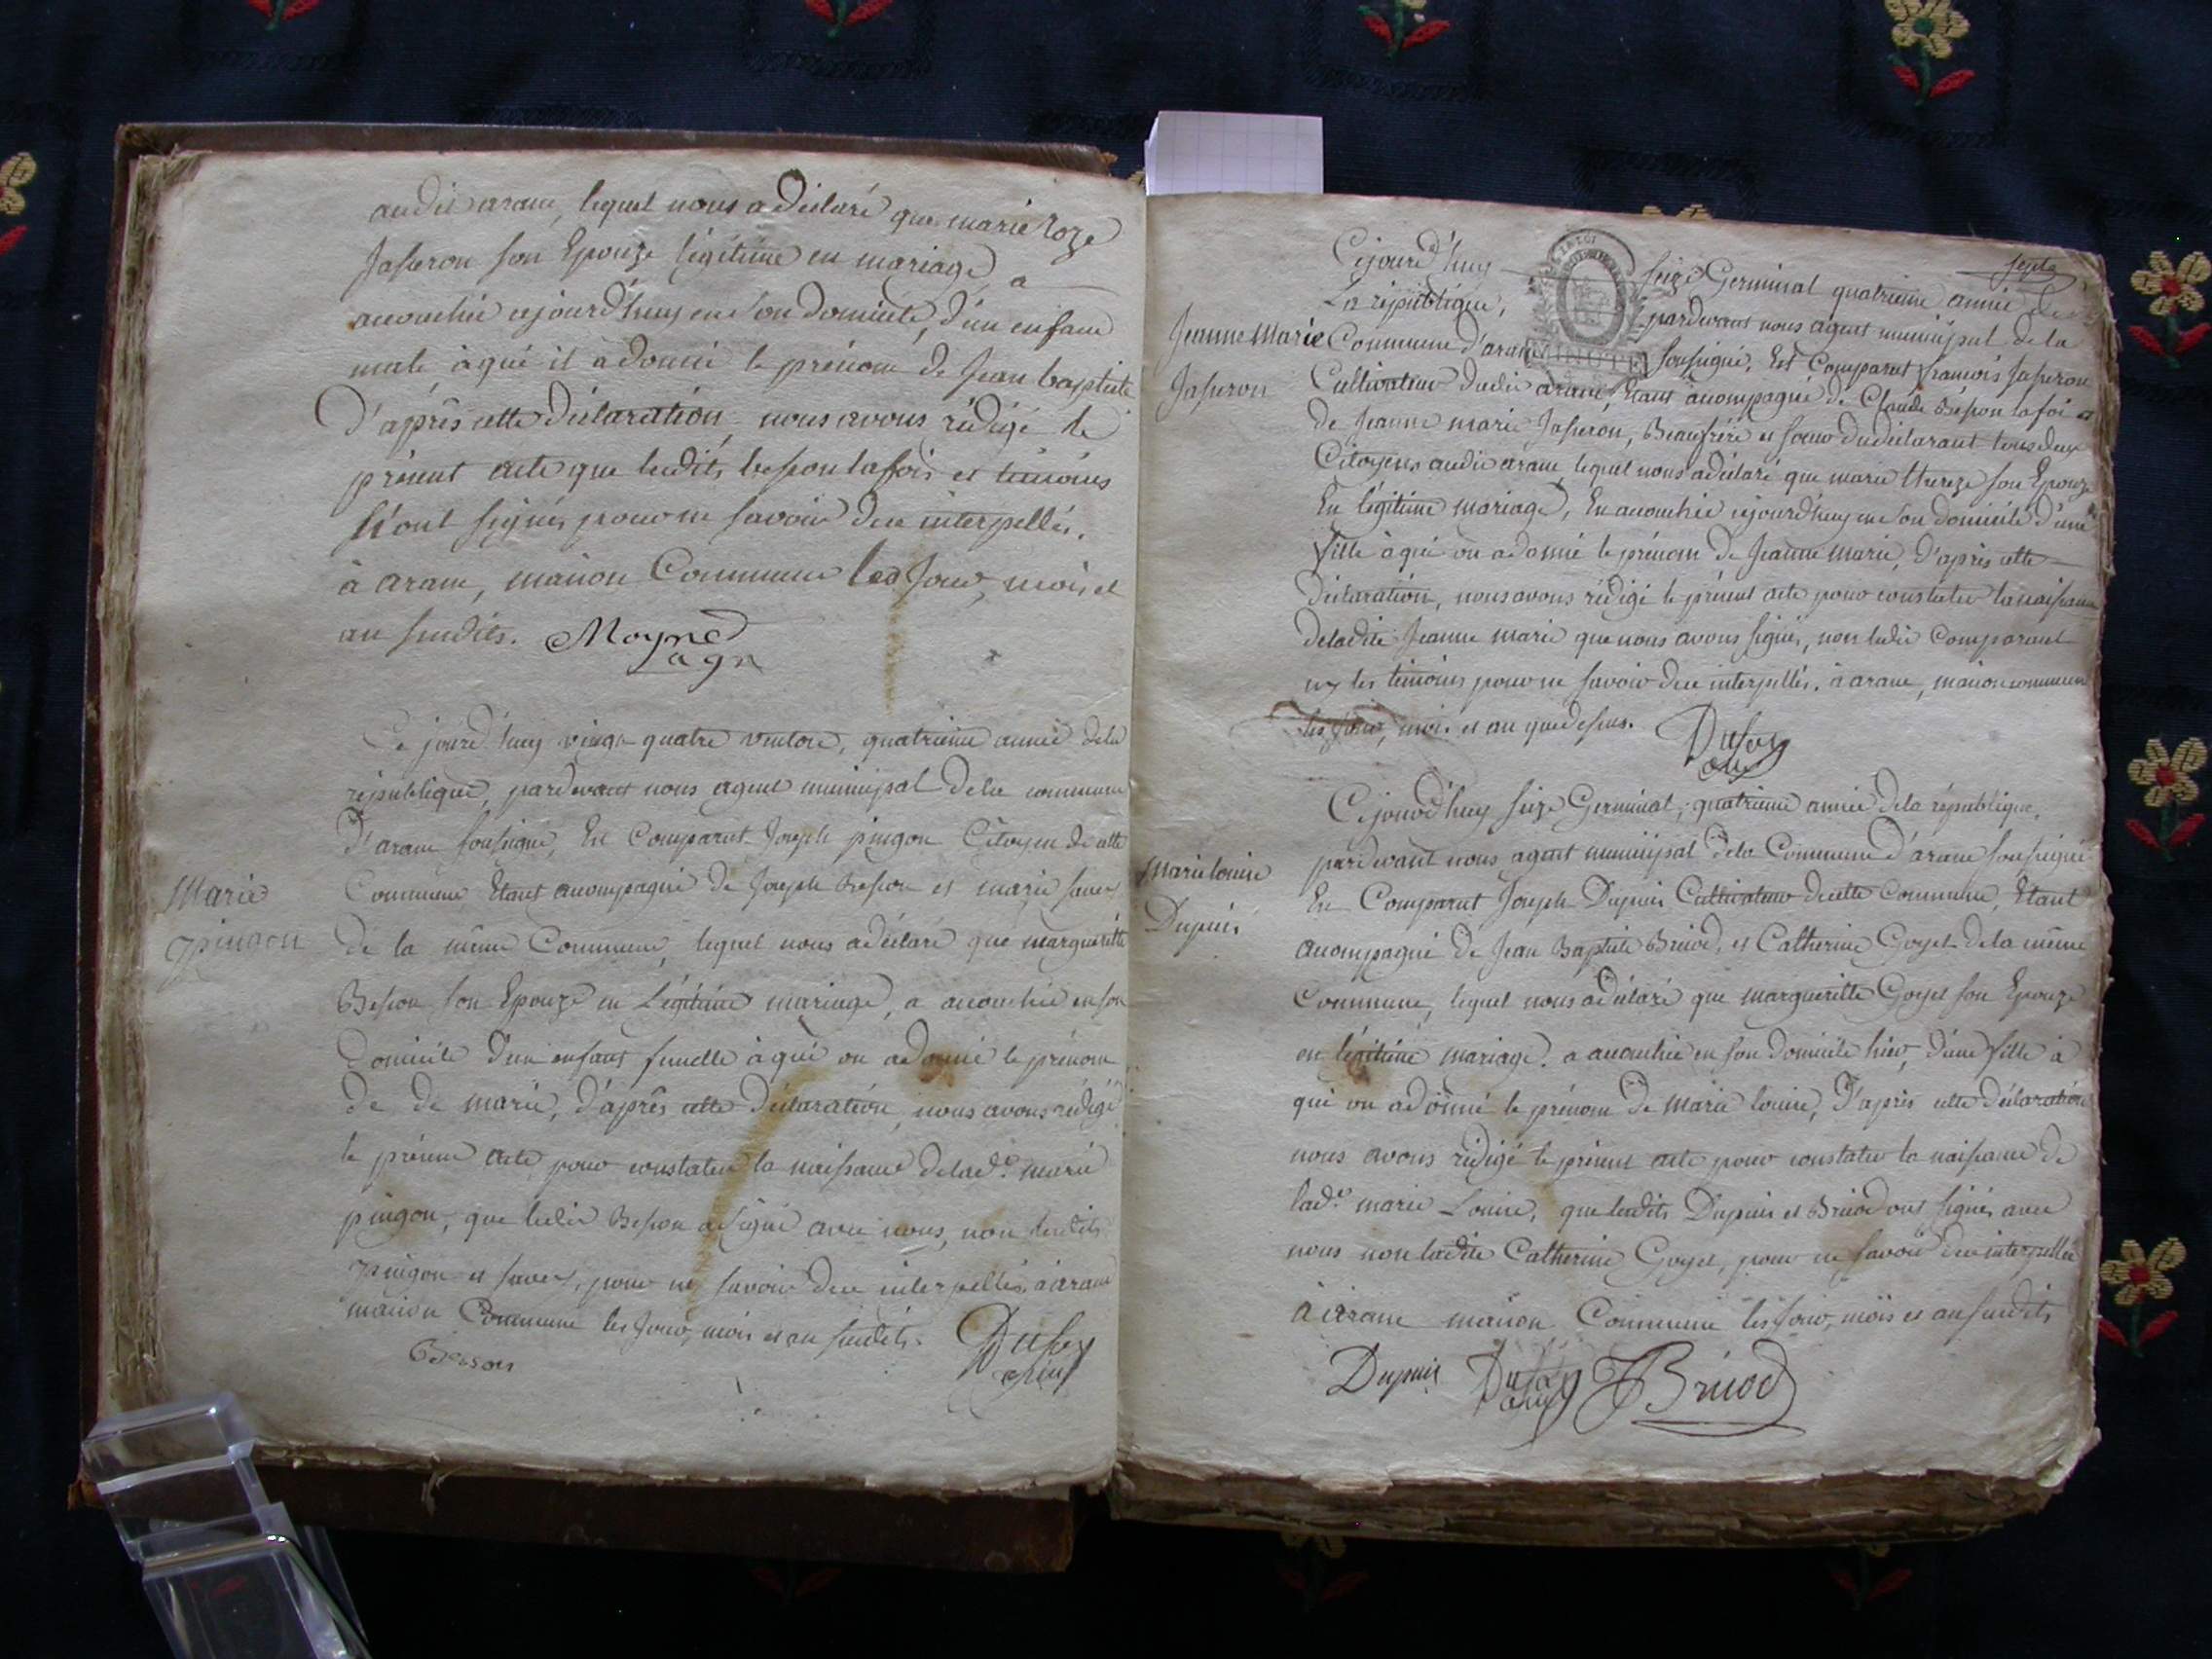 audit arane, lequel nous a déclaré que marie roze
Jasseron son Epouze légitime en mariage, a
acouchée cejourd'huy en son domicile, d'un enfant
male à qui il a donné le prénom de Jean baptiste
D'après cette déclaration nous avons rédigé le
présent acte que lesdits besson lafois et témoins
n'ont signés pour ne savoir de ce interpellés.
à arane, maison Commune les Jour, mois et
an susdits. Moyne
agn
Ce jourd'huy vingt quatre ventose, quatrieme année dela
république, pardevant nous agent municipal dela commune
d'arane soussigné, Est Comparut Joseph pingon Citoyen de cette
Commune Etant acompagné de Joseph Besson et marie
de la même Commune, lequel nous a déclaré que margueritte
Besson son Epouze en Légitime mariage, a acouchée en son
Domicile d'un enfant femelle à qui on a donné le prénom
de de marie, d'après cette déclaration, nous avons rédigé
le présent acte pour constater la naissance de lad.e marie
pingon, que ledit Besson a signé avec nous, non lesdits
pingon et pour ne savoir de ce interpellés, à arane
maison Commune les Jour, mois et an susdits.
Besson
Marie
pingon
septe
Cejourd'huy seize Germinal quatrieme année de
La république, pardevant nous agent municipal de la
Commune d'arane soussigné, Est Comparut françois Jasseron
MINUTE
Cultivateur dudit arane, Etant acompagné de Claude Besson lafoi et
de Jeanne marie Jasseron, Beaufrére et soeur du déclarant tous deux
Citoyens audit arane, lequel nous a déclaré que marie thereze son Epouze
En légitime mariage, En acouchée cejourd'huy en son domicile d'une
fille à qui on a donné le prénom de Jeanne marie, D'après cette
déclaration, nous avons rédigé le présent acte pour constater la naissance
de ladite Jeanne marie que nous avons signé, non ledit Comparant
ny les témoins pour ne savoir de ce interpellés, à arane, maison commune
les Jour, mois et an que dessus.
Jeanne Marie
Jasseron
Cejourd'huy seize Germinal, quatrieme année dela république,
pardevant nous agent municipal dela Commune d'arane soussigné
Est Comparut Joseph Dupuis Cultivateur de cette Commune, Etant
acompagné de Jean Baptiste Bruod, et Catherine Goyet de la même
Commune, lequel nous a déclaré que margueritte Goyet son Epouze
en légitime mariage, a acouchée en son domicile hier, d'une fille à
qui on a donné le prénom de Marie louise, D'après cette déclaration
nous avons rédigé le présent acte pour constater la naissance de
lad.e marie Louise, que lesdits Dupuis et Bruod ont signés avec
nous non ladite Catherine Goyet, pour ne savoir de ce interpellée
à arane maison Commune les Jour, mois et an susdits
Dupuis Bruod
Marie louise
Dupuis